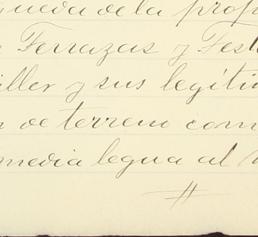 queda de la prop
Terrazas y Tes
ller y sus legíti
de terreno com
media legua al